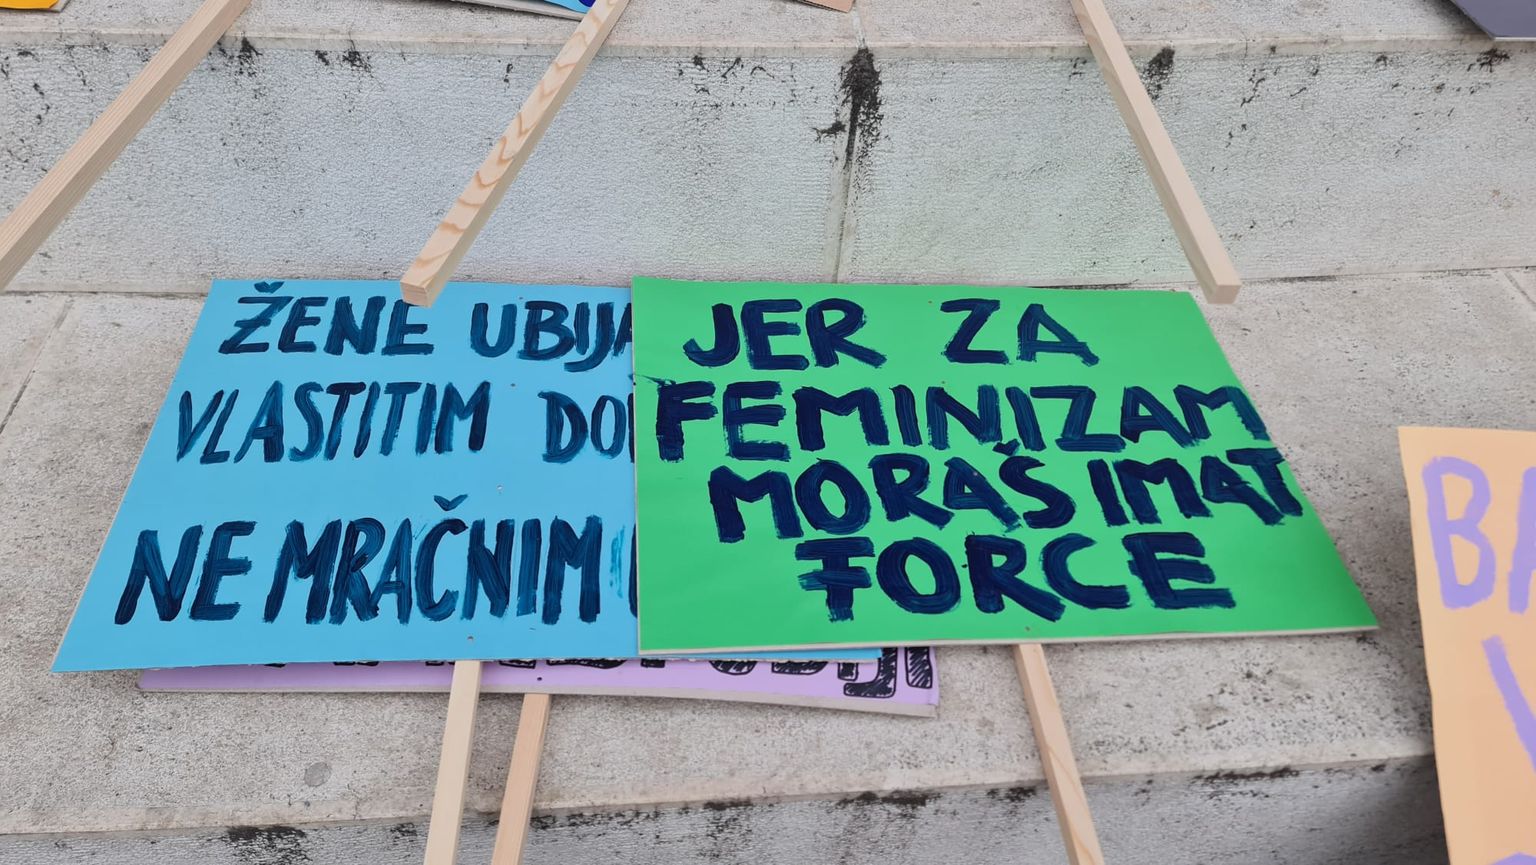 ŽENE UBIJA
VLASTITIM
NE MRAČNIM
JER ZA
FEMINIZAM
MORAŠ IMAT
FORCE